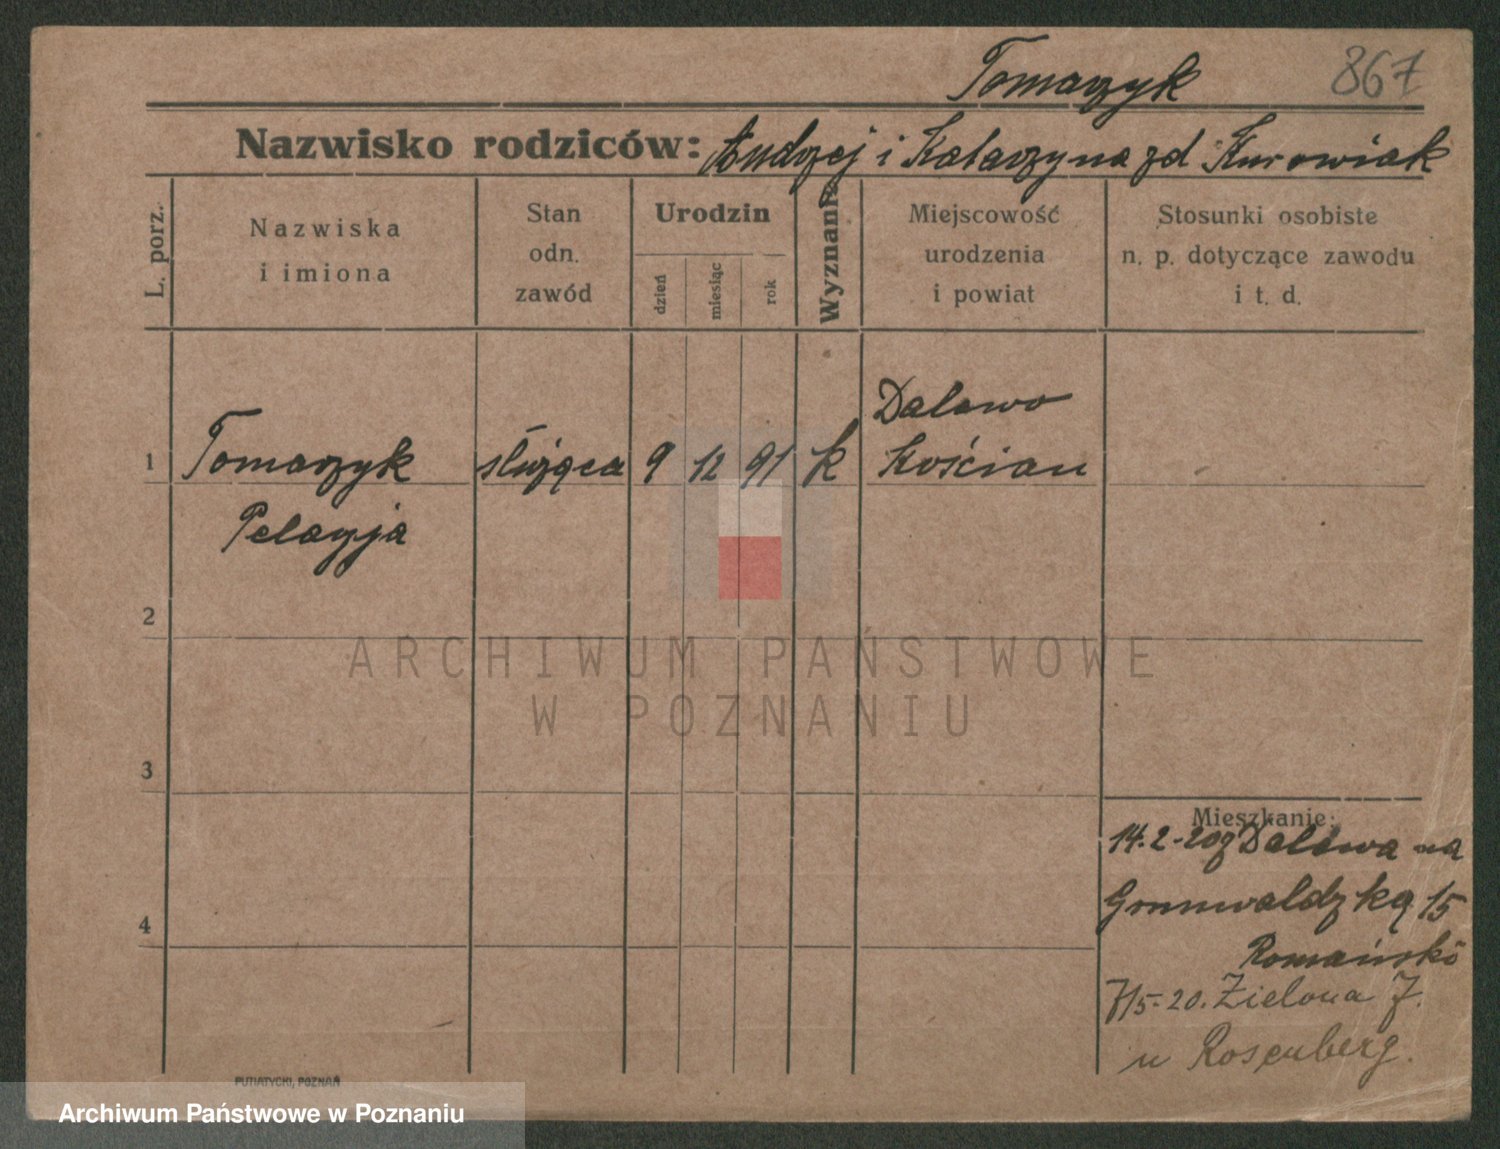 Tomaszyk 867
Nazwisko rodziców: Andrzej i Katarzyna zd Kurowiak
L. porz.
Nazwiska
i imiona
Stan
odn.
zawód
Urodzin
dzień
miesiąc
rok
Wyznanie
Miejscowość
urodzenia
i powiat
Stosunki osobiste
n. p. dotyczące zawodu
i t. d.
1 Tomaszyk służąca 9 12 91 k Dalewo
Kościan
Pelazja
2
3
4
Mieszkanie:
14.2-20 z Dalewa na
Grunwaldzką 15
7/5-20. Zielona 7.
u Rosenberg.
PUTIATYCKI, POZNAŃ
ARCHIWUM PAŃSTWOWE
W POZNANIU
Archiwum Państwowe w Poznaniu